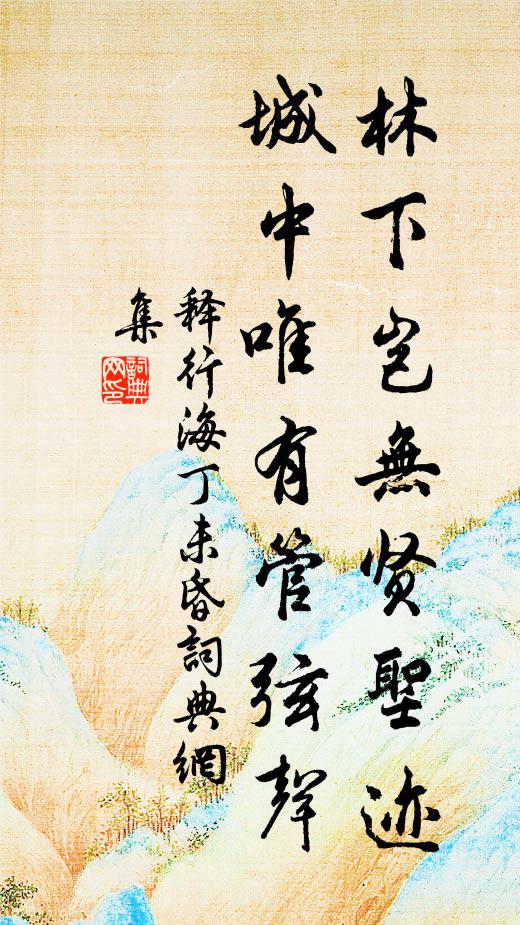 林下岂無贤聖迹
城中唯有管弦聲
释行海丁未昏詞典網
集
詞典網印